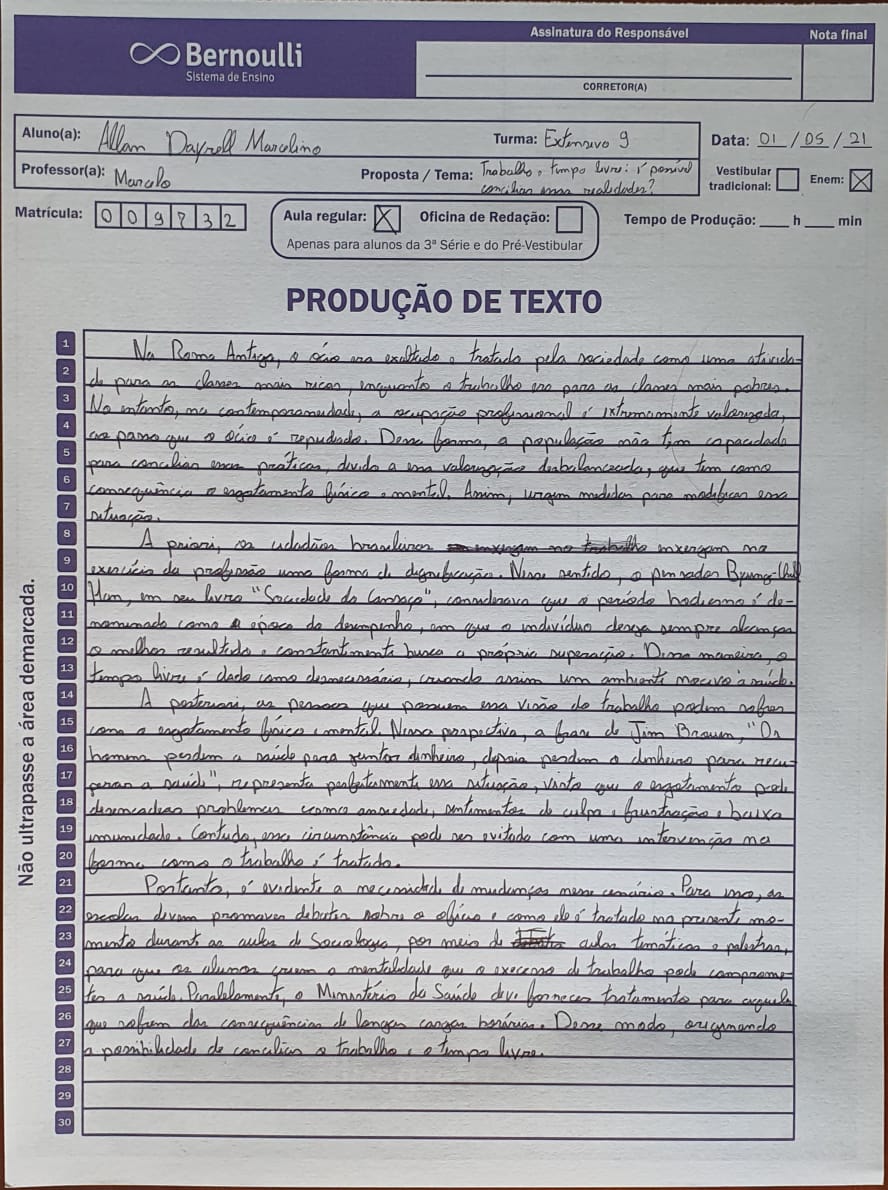 Bernoulli
Sistema de Ensino
Assinatura do Responsável
Nota final
CORRETOR(A)
Aluno(a): Allan Dayrell Marcolino
Turma: Extensivo 9
Data: 01/05/21
Professor(a): Marcelo
Proposta / Tema: Trabalho e tempo livre: é possível
conciliar essas realidades?
Vestibular
tradicional:
Enem: X
Matrícula: 009732
Aula regular: X
Oficina de Redação:
Apenas para alunos da 3ª Série e do Pré-Vestibular
Tempo de Produção: ____ h ____ min
PRODUÇÃO DE TEXTO
Não ultrapasse a área demarcada.
1 Na Roma Antiga, o ócio era exaltado e tratado pela sociedade como uma ativida-
2 de para as classes mais ricas, enquanto o trabalho era para as classes mais pobres.
3 No entanto, na contemporaneidade, a ocupação profissional é extremamente valorizada,
4 ao passo que o ócio é repudiado. Dessa forma, a população não tem capacidade
5 para conciliar essas práticas, divido a essa valorização desbalanceada, que tem como
6 consequência o esgotamento físico e mental. Assim, urgem medidas para modificar essa
7 situação.
8 A priori, os cidadãos brasileiros enxergam no trabalho enxergam na
9 exercício da profissão uma forma de dignificação. Nesse sentido, o pensador Byung-Chul
10 Han, em seu livro "Sociedade do Cansaço", considerava que o período hodierno é de-
11 nominado como a época do desempenho, em que o indivíduo deseja sempre alcançar
12 o melhor resultado e constantemente busca a própria superação. Dessa maneira, o
13 tempo livre é dado como desnecessário, criando assim um ambiente nocivo à saúde.
14 A posteriori, as pessoas que possuem essa visão do trabalho podem sofrer
15 com o esgotamento físico e mental. Nessa perspectiva, a frase de Jim Brown, "Os
16 homens perdem a saúde para juntar dinheiro, depois perdem o dinheiro para recu-
17 perar a saúde", representa perfeitamente essa situação, visto que o esgotamento pode
18 desencadear problemas como ansiedade, sentimentos de culpa e frustração e baixa
19 imunidade. Contudo, essa circunstância pode ser evitada com uma intervenção na
20 forma como o trabalho é tratado.
21 Portanto, é evidente a necessidade de mudanças nesse cenário. Para isso, as
22 escolas devem promover debates sobre o ofício e como ele é tratado no presente mo-
23 mento durante as aulas de Sociologia, por meio de aulas temáticas e palestras,
24 para que os alunos criem a mentalidade que o excesso de trabalho pode comprome-
25 ter a saúde. Paralelamente, o Ministério da Saúde deve fornecer tratamento para aqueles
26 que sofrem das consequências de longas cargas horárias. Desse modo, originando
27 a possibilidade de conciliar o trabalho e o tempo livre.
28
29
30